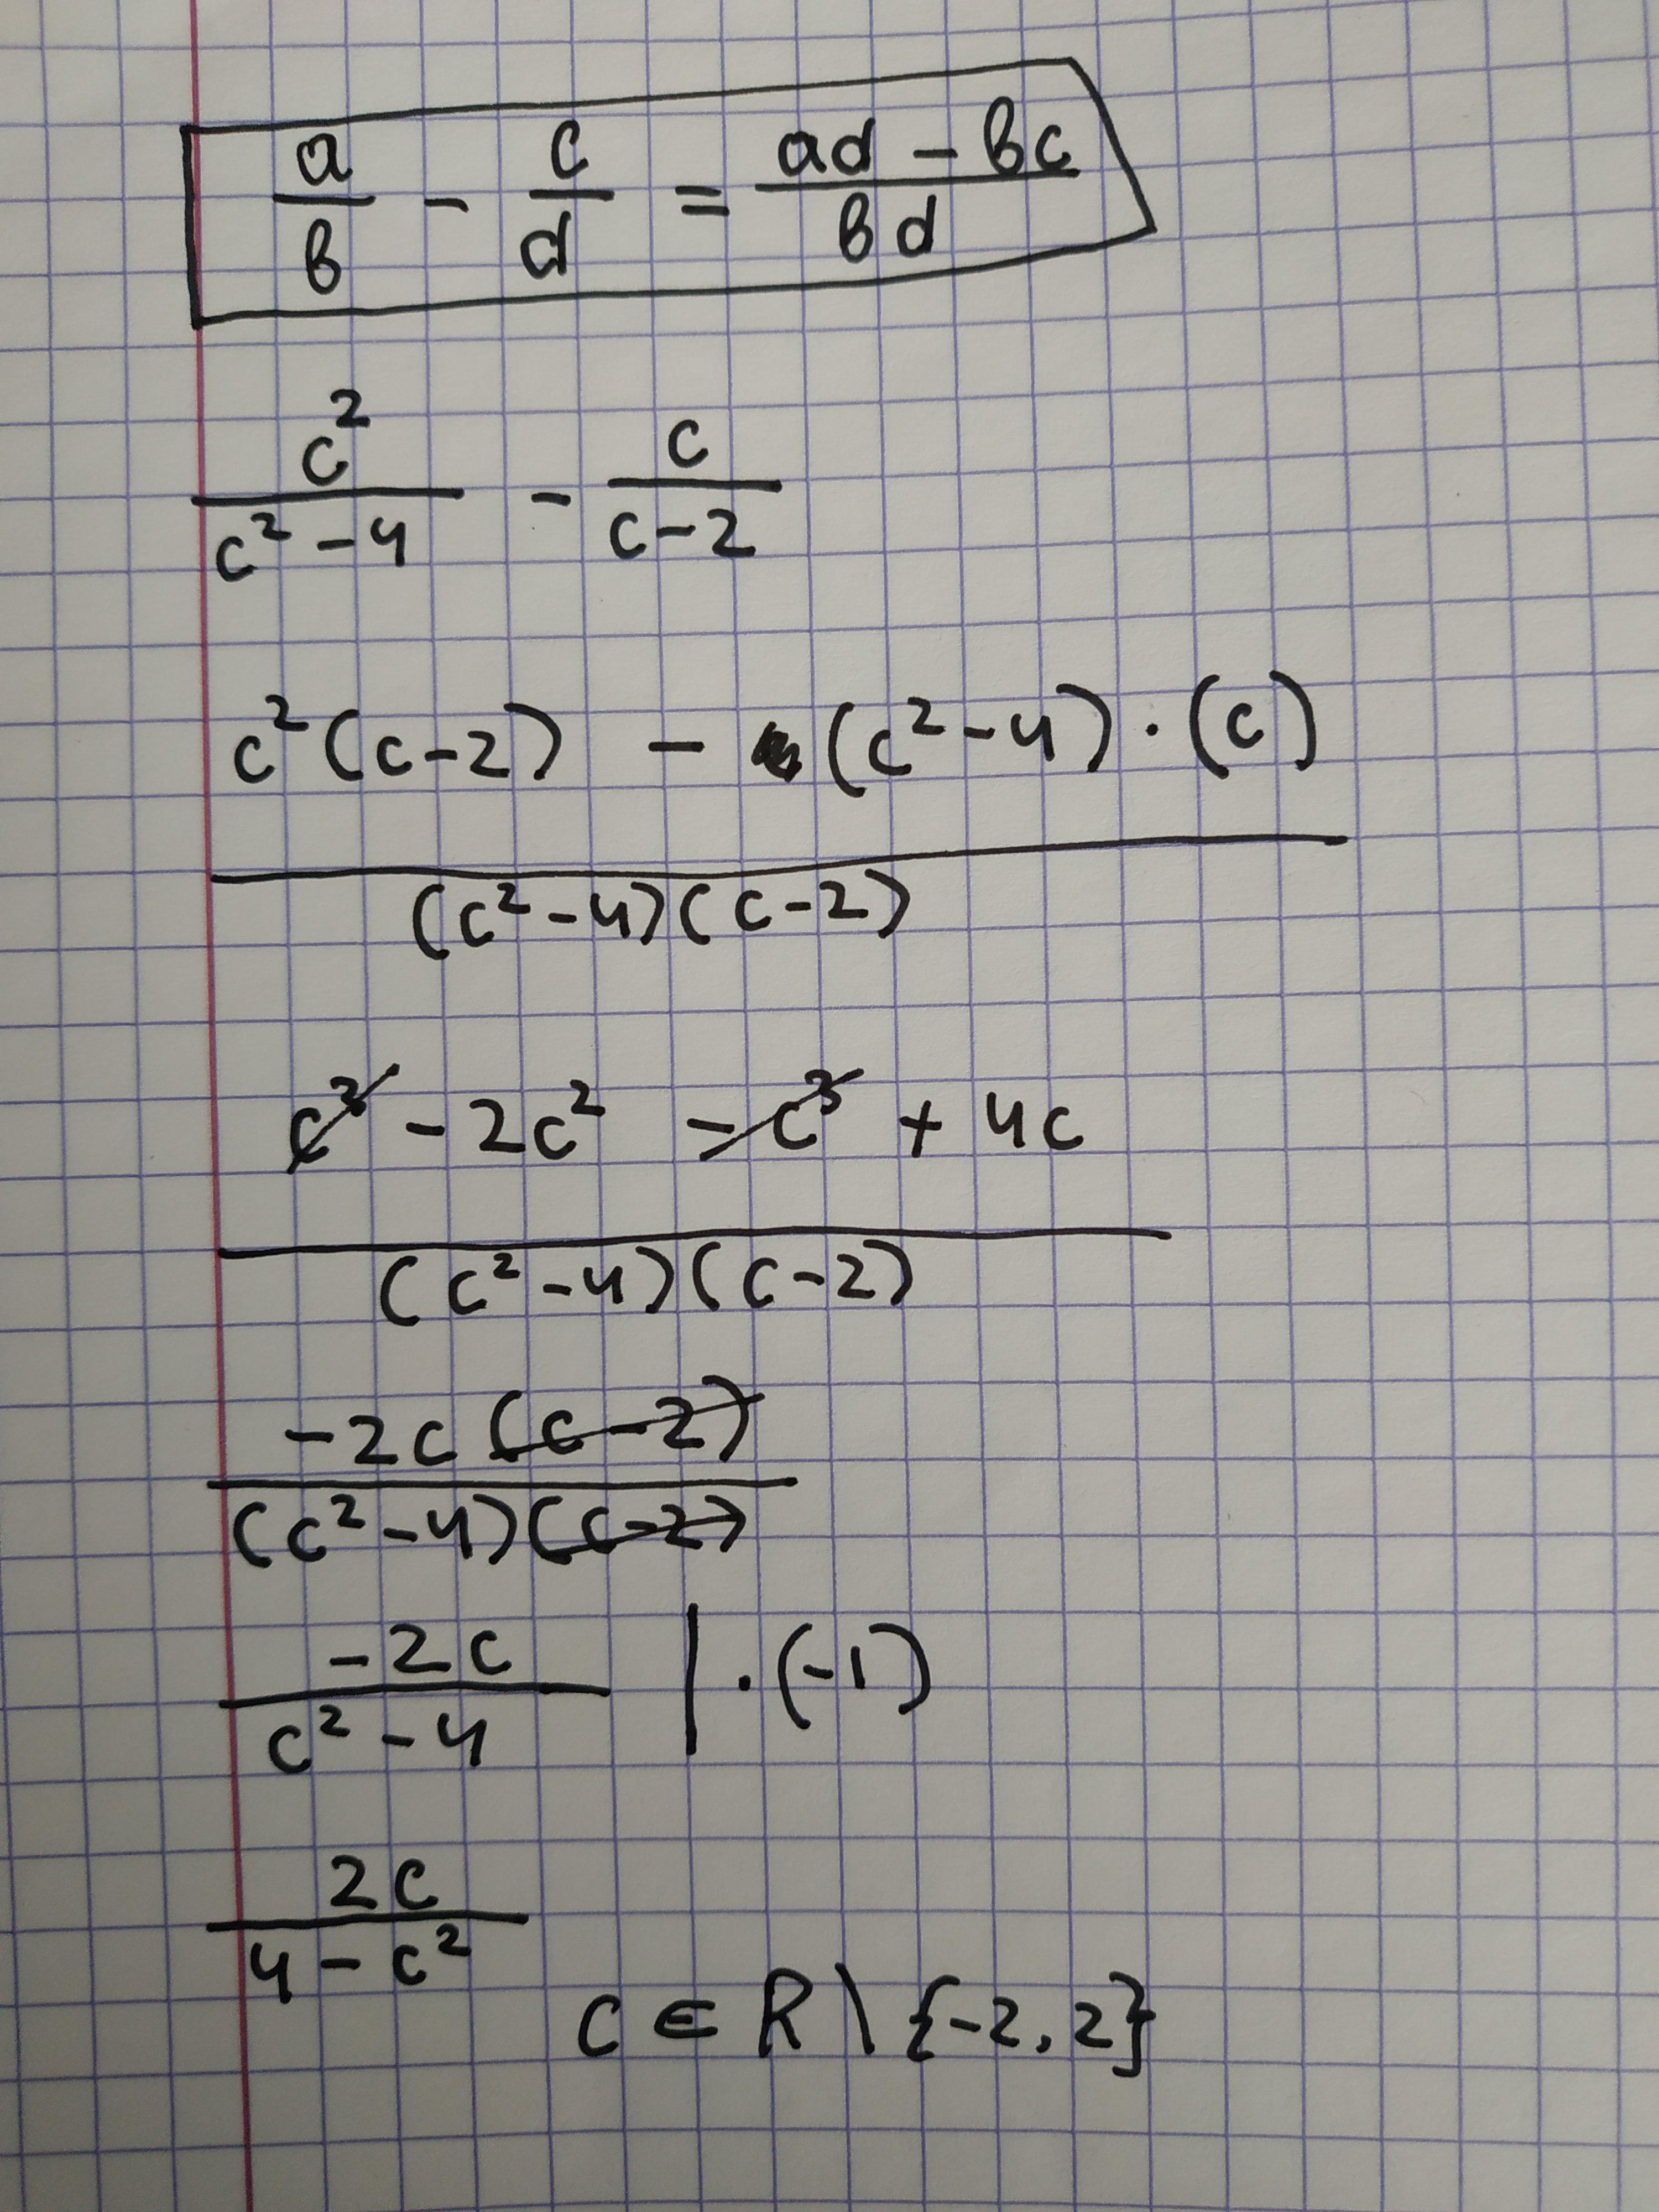 a/b - c/d = (ad - bc)/(bd)
c²/(c² - 4) - c/(c - 2)
(c²(c - 2) - (c² - 4) · (c))/((c² - 4)(c - 2))
(c³ - 2c² - c³ + 4c)/((c² - 4)(c - 2))
(-2c(c - 2))/((c² - 4)(c - 2))
(-2c)/(c² - 4) | · (-1)
2c/(4 - c²)
c ∈ R \ {-2, 2}